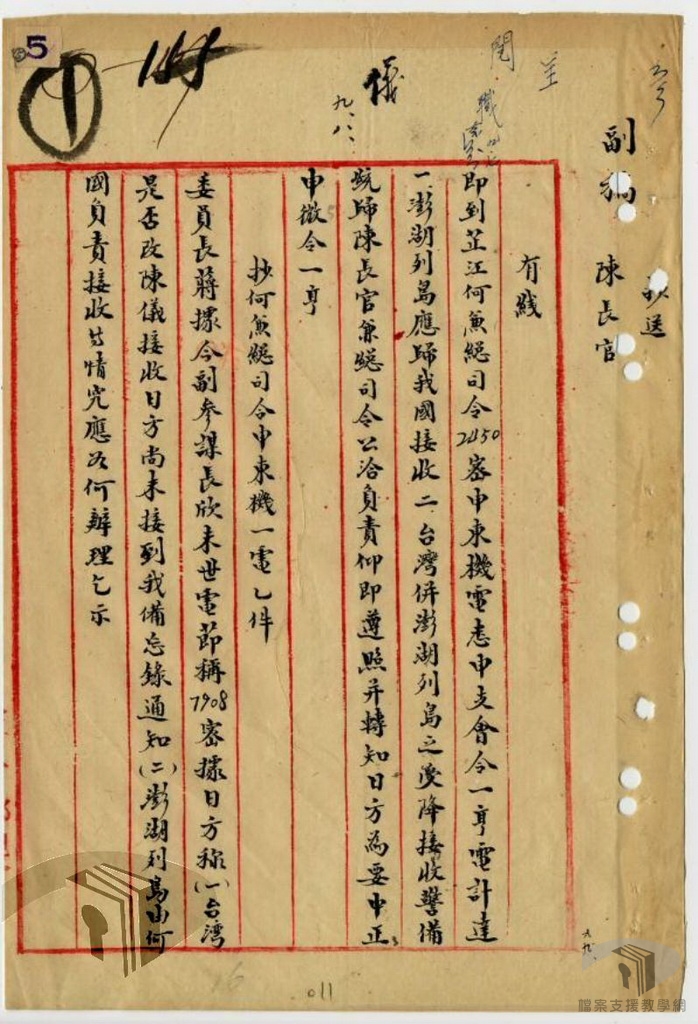 5
呈
閱
職
儀
九、八、
副稿
抄送
陳長官
有线
即到芷江何兼總司令2450密申東機電悉申支會令一亨電計達
一、澎湖列島應歸我國接收二、台灣併澎湖列島之受降接收警備
統歸陳長官兼總司令公洽負責仰即遵照并轉知日方為要中正
申徵令一亨
抄何兼總司令申東機一電乙件
委員長蔣據令副參謀長欣未世電節稱7908密據日方称(一)台湾
是否改陳儀接收日方尚未接到我備忘錄通知(二)澎湖列島由何
國負責接收等情究應如何辦理乞示
011
檔案支援教學網